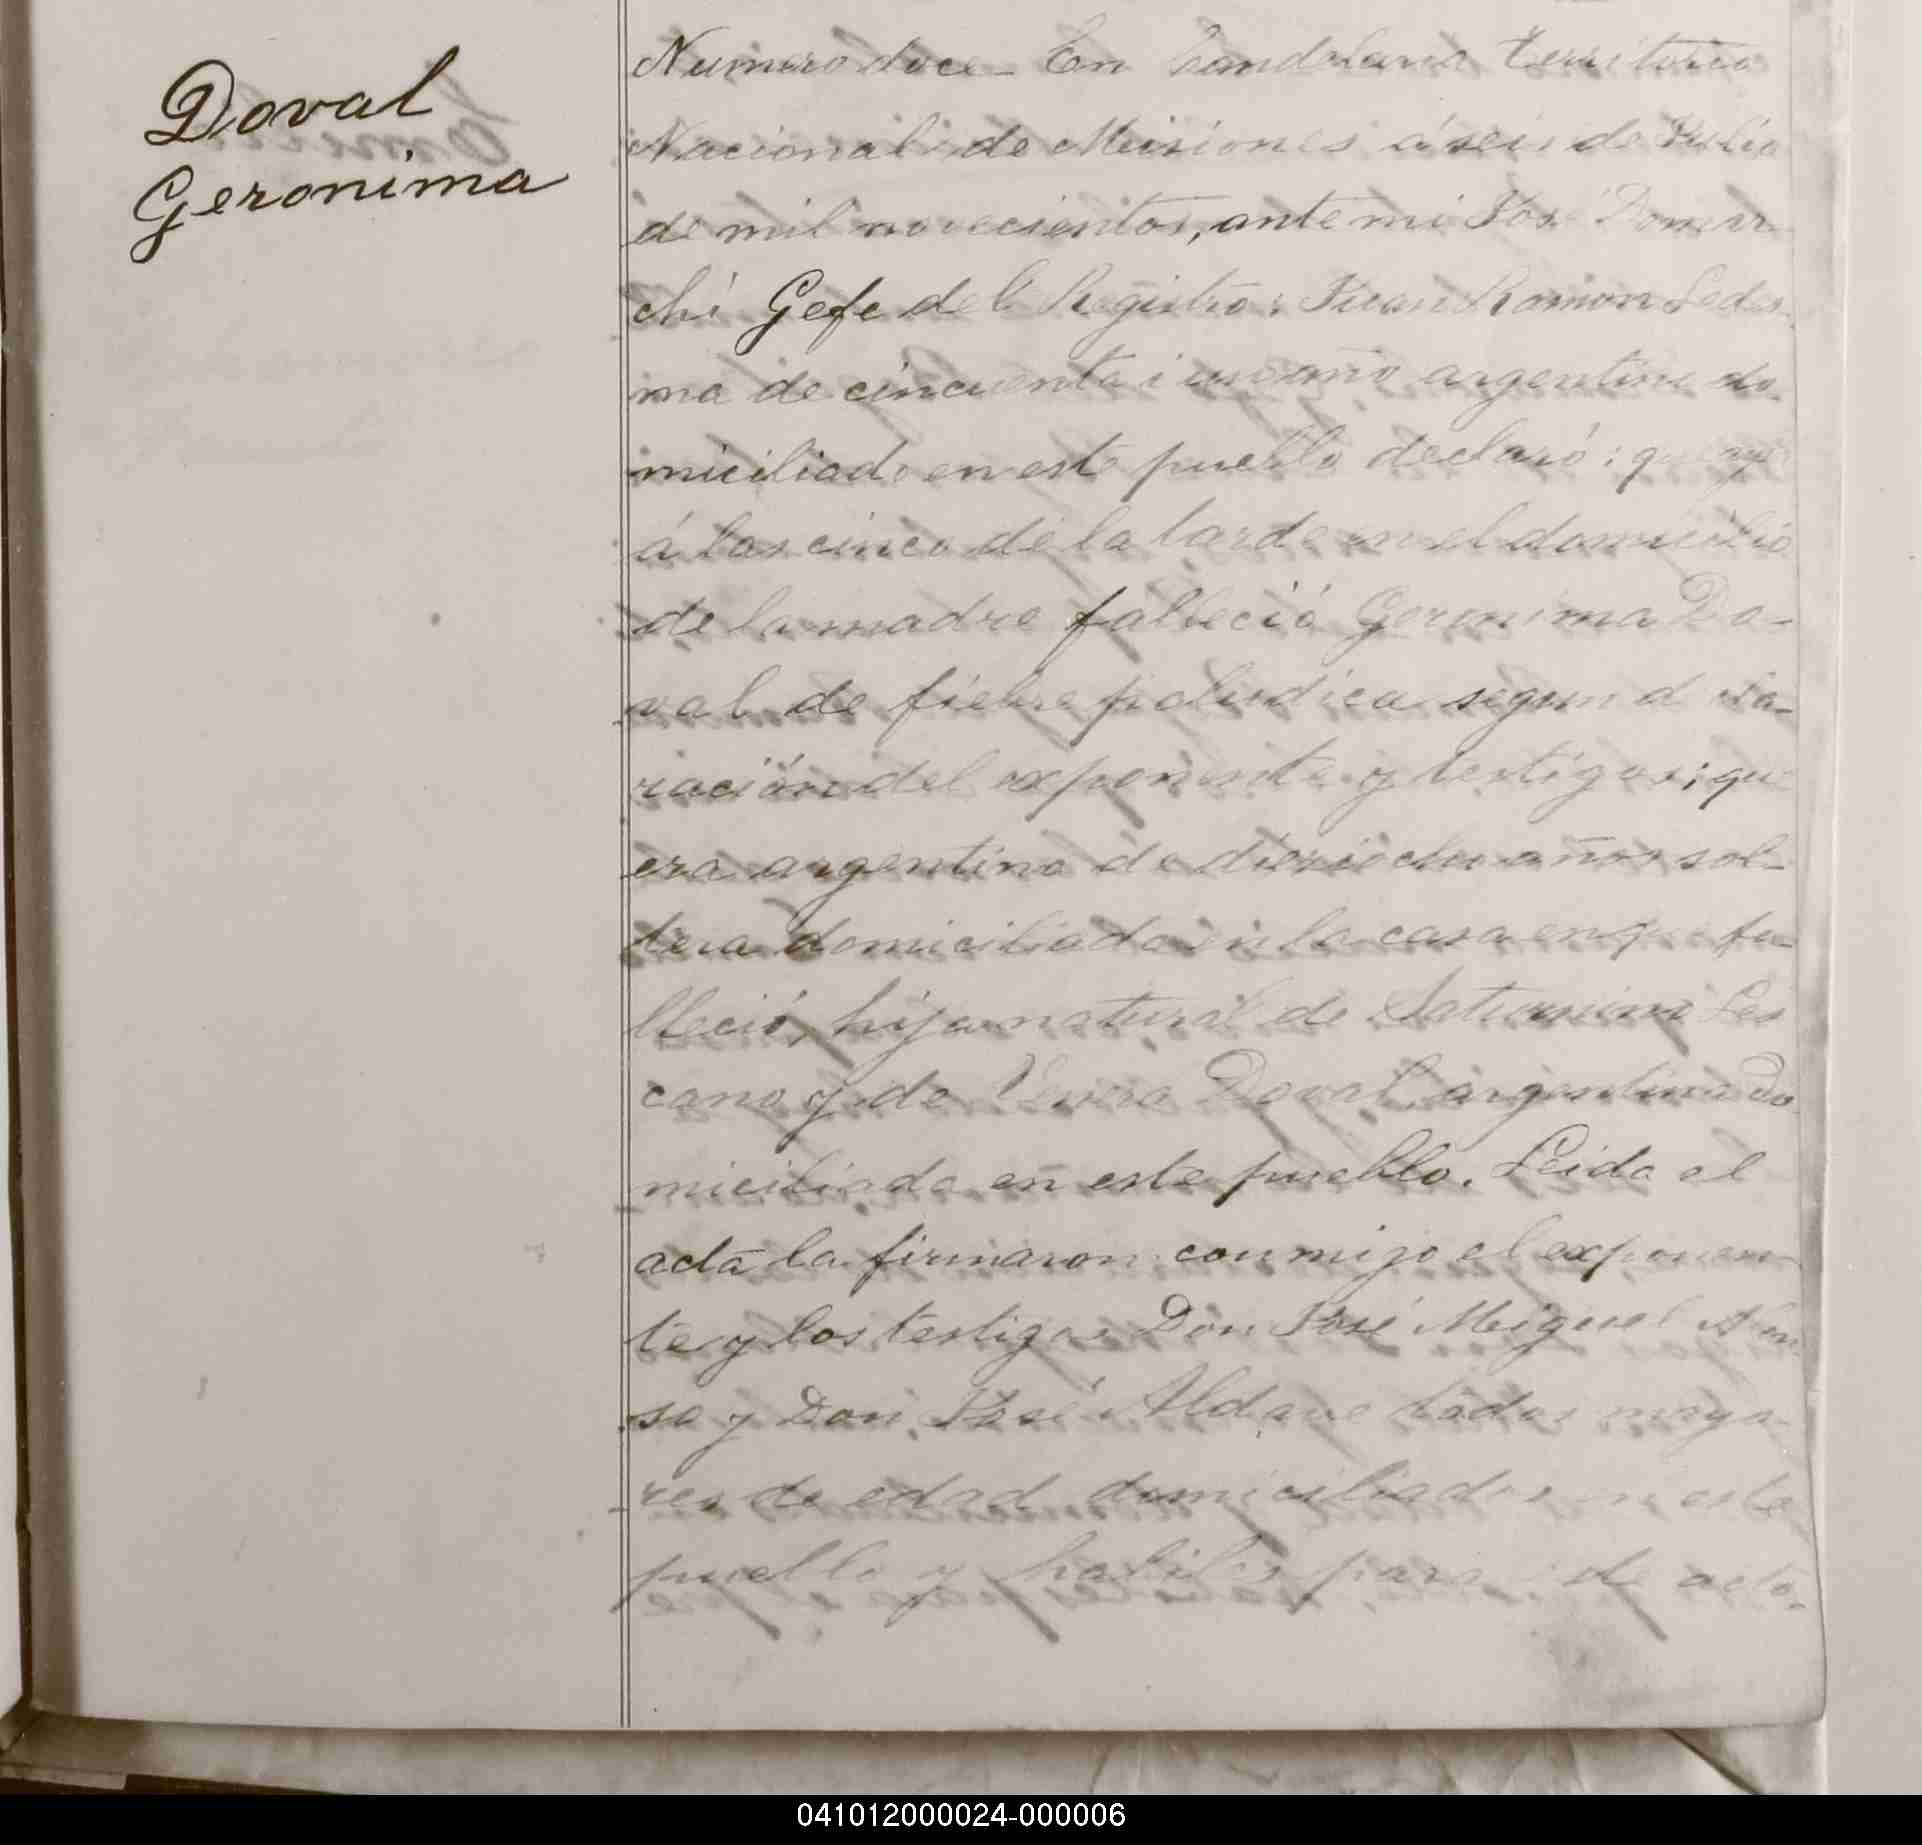 Doval
Geronima
Numero doce - En Candelaria Territorio
Nacional de Misiones á seis de Julio
de mil novecientos, ante mi José
chi Gefe del Registro: Juan Ramon Ledes-
ma de cincuenta i un año argentino do-
miciliado en este pueblo declaró: que
á las cinco de la tarde en el domicilio
de la madre falleció Geronima Do-
val de fiebre paludica segun
racion del exponente y testigos; que
era argentina de dieziocho años sol-
tera domiciliada en la casa en que fa-
lleció, hija natural de Saturnino Les
cano y de Doval, argentina do
miciliada en este pueblo. Leida el
acta la firmaron conmigo el exponen
te y los testigos Don José Miguel Alon
so y Don José Aldave todos mayo-
res de edad domiciliados en este
pueblo y habiles para de acto.
041012000024-000006